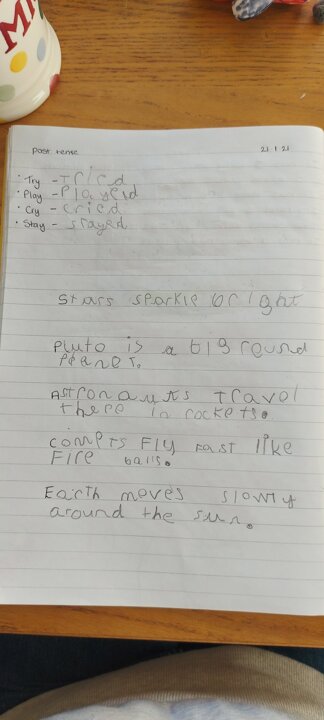 past tense 21/1/21
· Try - Tried
· Play - Played
· Cry - Cried
· Stay - stayed
Stars sparkle bright
Pluto is a big round
planet.
Astronauts travel
there in rockets.
comets Fly Fast like
Fire balls.
Earth moves slowly
around the sun.